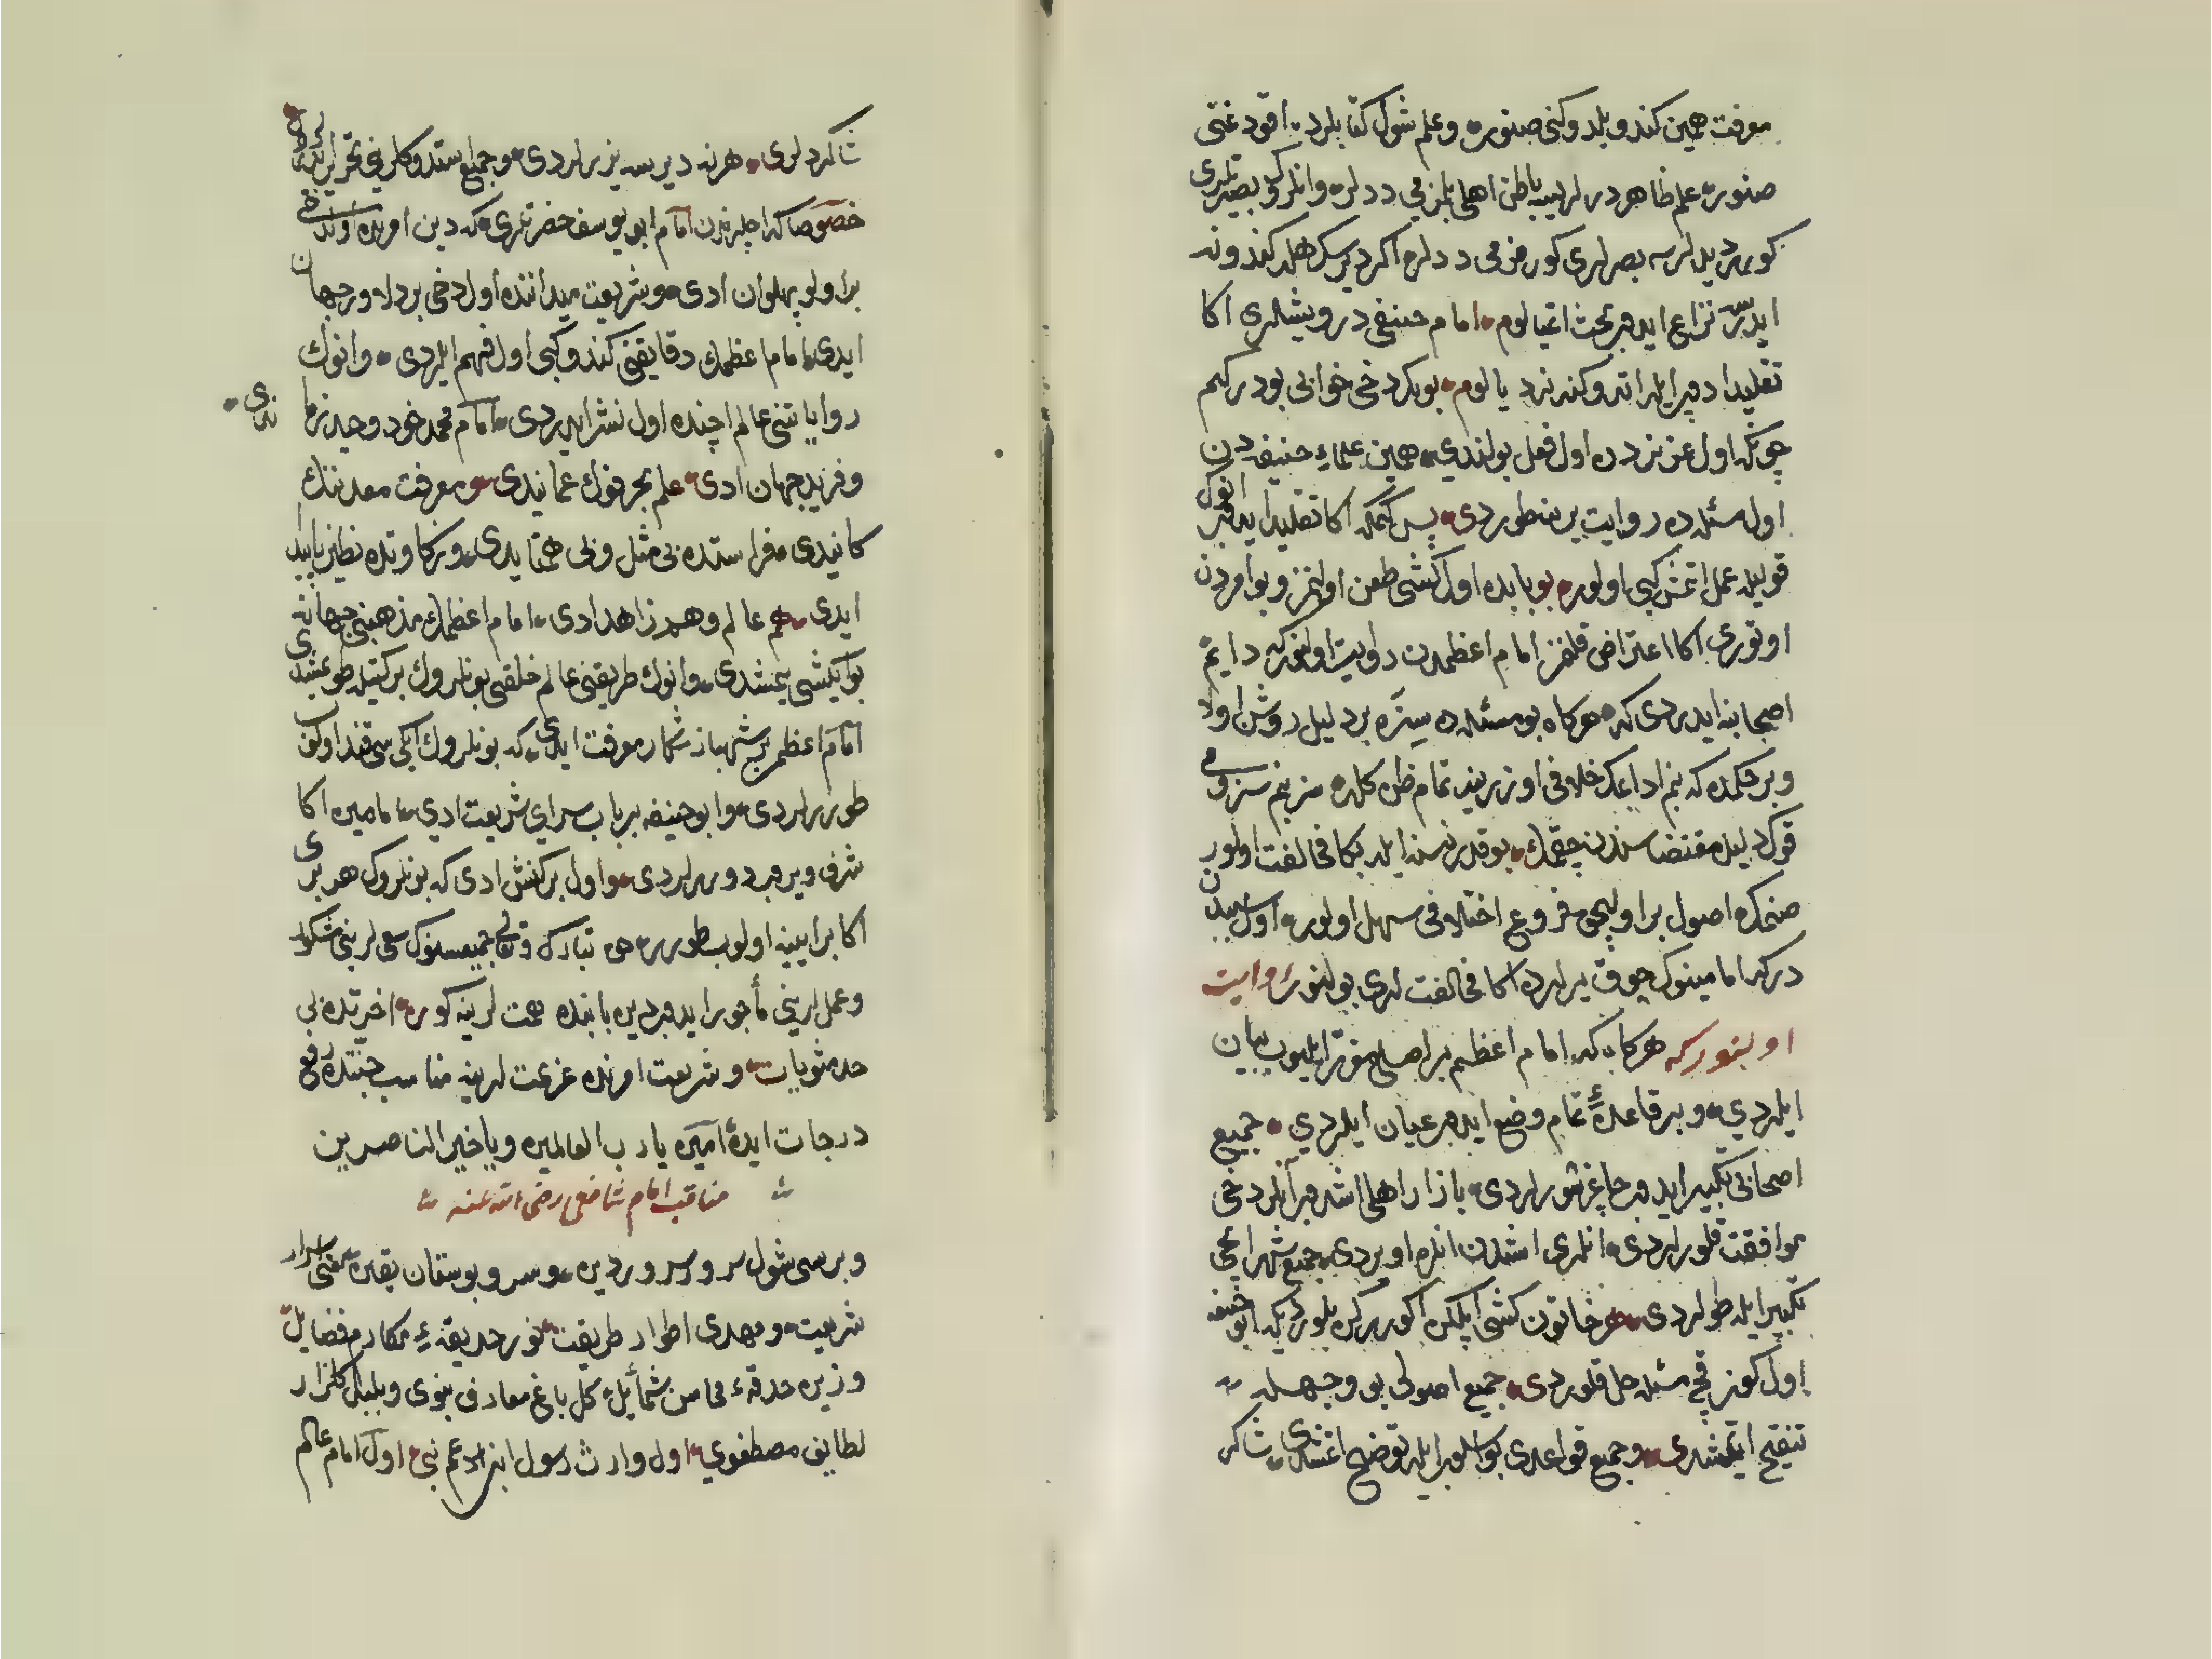 معرفت همین کندو بلدوکنی صنور و علم شول کتابلرد اقودغنی
صنور علم ظاهر درلر لیب باطن اهلی بلزمی ددلر وانلرک بصیرتلری
کورر دیدلرسه بصرلری کورمزمی ددلر اکر دیرسک هله کندونه
ایدر نزاع ایدوب بحث اتمیالوم امام حنیفی درویشلری اکا
تقلید ادوب ایلر اتدوکندندر دیالوم بو کرد خی خوابی بودرکم
چونکه اول عزیزدن اول فعل بولندی همین علماء حنیفه دن
اول مسئله ده روایت بر طوردی پس کمکه اکا تقلید ایدوب انوک
قولیله عمل اتمش کبی اولور بو بابده اول کشی طعن اولنمز و بو امردن
اوتوری اکا اعتراض قلنمز امام اعظمدن روایت اولنورکه دایم
اصحابنه ایدردی که هرکاه بو مسئله ده سزه بر دلیل روشن اولا
و بر حکمده که بنم ادعامک خلافی اوزرینه تمام ظن کله سز بنم سزومی
قوک دلیل مقتضاسندن چقمک بو قدر نسنه ایله بکا مخالفت اولور
صنمک اصول بر اولیجق فروع اختلافی سهل اولور اول سببدن
درکه امامینوک چوق یرلرده اکا مخالفتلری بولنور روایت
اولنورکه هرکاه که امام اعظم بر اصلی مقرر ایلیوب بیان
ایلردی و بر قاعده تمام وضع ایدوب عیان ایلردی جمیع
اصحابی تکبیر ایدوب چاغرشورلردی بازار اهلی اشدوب آنلر دخی
موافقت قلورلردی انلری اشدن انلره اویردی جمیع شهر ایچی
تکبیر ایله طولردی هر خاتون کشی ایلکن اکورر کن بلوردیکه ابو حنیفه
اول کون قچ مسئله حل قلوردی جمیع اصولی بو وجهله
تنقیح ایتمشدی و جمیع قواعدی بو اسلوب ایله توضیح اتمشدی شاکر
شاکردلری هرنه دیرسه یزرلردی و جمیع استدوکلرینی تحریر ایدرلردی
خصوصا که اجلرندن امام ابو یوسف حضرتلری که دین اورنده اول
بر اولو پهلوان ادی و شریعت میداننده اول دخی بر دلاور جهان
ایدی امام اعظمک دقایقنی کندو کبی اول فهم ایلردی و انوک
روایاتنی عالم اچنده اول نشر ایدردی امام محمد خود وحید زماندی
و فرید جهان ادی علم بحرنوک عمانیدی و معرفت معدننک
کانیدی فراستده بی مثل و بی همتایدی و زکاوتده نظیر نابید
ایدی هم عالم و هم زاهدادی امام اعظمک مذهبنی جهانه
بو ایکشی یمشدی و انوک طریقنی عالم خلقی بونلروک برکتیله طوتمشدی
امام اعظم بر شهباز شکار معرفت ایدی که بونلروک ایکی سی قنداوکف
طوررلردی و ابو حنیفه بر باب سرای شریعت ادی امامین اکا
شرف ویروب دوررلردی و اول بر کنش ادی که بونلروک هر بری
اکا بر ایینه اولوب طورر حق تبارک و تعالی جمیعسنوک سعی لرینی مشکور
و عمل لرینی مأجور ایدوب دین بابنده همت لرینه کوره اخرتده بی
حد مثوبات و شریعت اورنده عزیمت لرینه مناسب جنتده رفع
درجات ایده آمین یا رب العالمین و یا خیر الناصرین
مناقب امام شافعی رضی الله عنه
و بریسی شول سرو سرور دین و سرو بوستان یقین مفتی اسرار
شریعت و مهدی اطوار طریقت نور حدیقه ء مکارم فضایل
و زین حدقه ء محاسن شمایل کل باغ معارف نبوی و بلبل کلزار
لطایف مصطفوی اول وارث رسول ابن عم نبی اول امام عالم